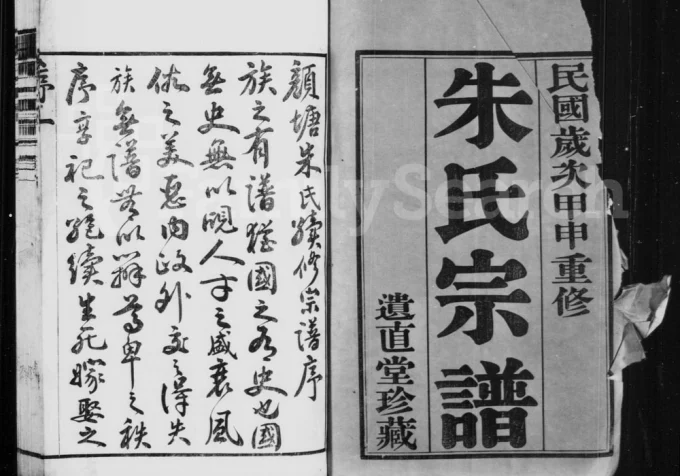 民國歲次甲申重修
朱氏宗譜
遺直堂珍藏
顏塘朱氏續修宗譜序
族之有譜猶國之有史也國
無史無以覘人才之盛衰風
俗之美惡內政外交之得失
族無譜無以辨尊卑之秩
序享祀之絕續生死嫁娶之
序一
FamilySearch